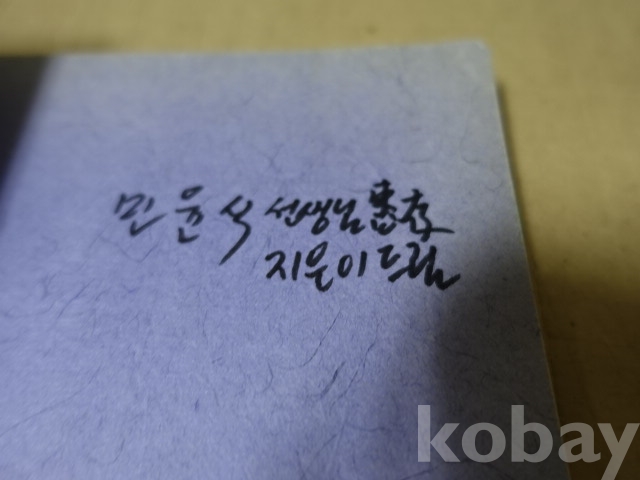 민윤식 선생님 惠存
지은이 드림
kobay